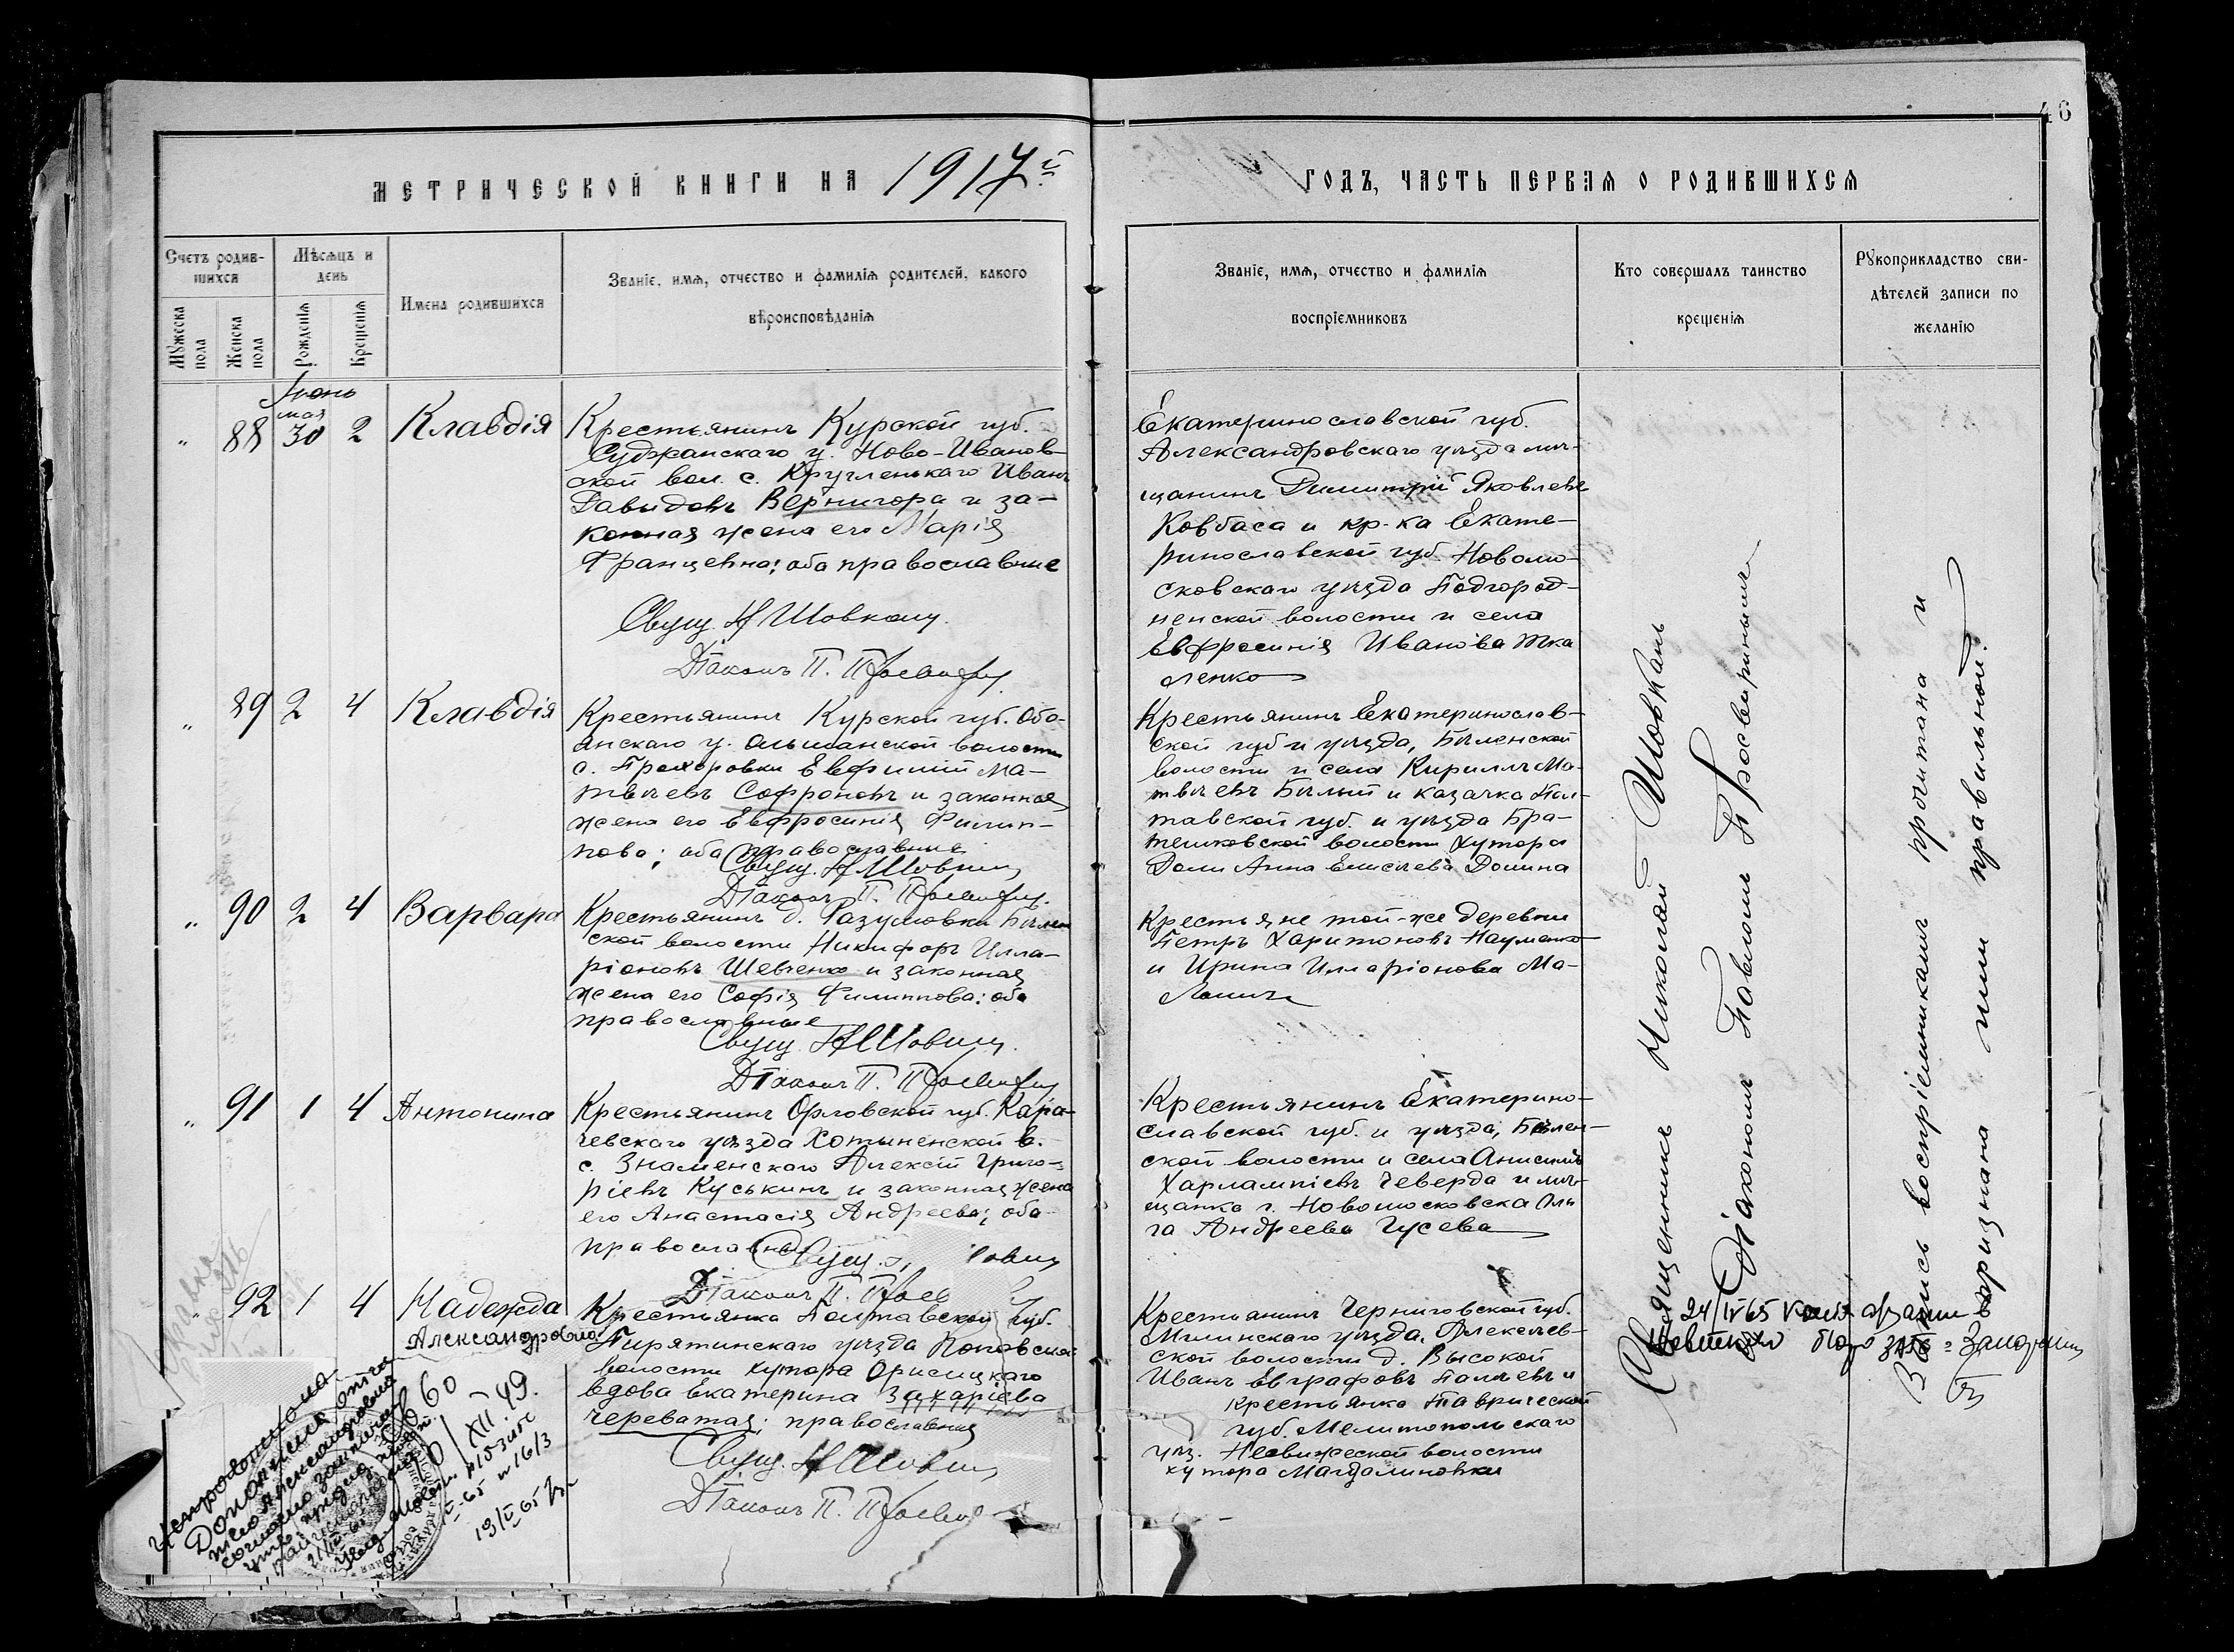 46
МЕТРИЧЕСКОЙ КНИГИ НА 1917й
ГОДЪ, ЧАСТЬ ПЕРВАЯ О РОДИВШИХСЯ
Счетъ родив-
шихся
Мужеска пола
Женска пола
Мѣсяцъ и
день
Рожденія
Крещенія
Имена родившихся
Званіе, имя, отчество и фамилія родителей, какого
вѣроисповѣданія
Званіе, имя, отчество и фамилія
воспріемниковъ
Кто совершалъ таинство
крещенія
Рукоприкладство сви-
дѣтелей записи по
желанію
Іюнь
мая
" 88 30 2 Клавдія
Крестьянинъ Курской губ.
Суджанскаго у. Ново-Иванов-
ской вол. с. Кругленькаго Иванъ
Давыдовъ Вернигора и за-
конная жена его Марія
Францевна; оба православные
Свящ. Н Шовкань.
Діаконъ П.
Екатеринославской губ.
Александровскаго уѣзда мѣ-
щанинъ Димитрій Яковлевъ
Ковбаса и кр-ка Екате-
ринославской губ. Новомо-
сковскаго уѣзда Подгород-
ненской волости и села
Евфросинія Иванова Тка
ленко
" 89 2 4 Клавдія
Крестьянинъ Курской губ. Обо-
янскаго у. Ольшанской волости
с. Прохоровки Евфимій Ма-
твѣевъ Софроновъ и законная
жена его Евфросинія Филип-
пова; оба православные
Свящ. Н Шовкань
Діаконъ П.
Крестьянинъ Екатеринослав-
ской губ и уѣзда, Бѣленской
волости и села Кириллъ Ма-
твѣевъ Бѣлый и казачка Пол-
тавской губ. и уѣзда Бра-
тешковской волости хутора
Анна Елисѣева Долина
" 90 2 4 Варвара
Крестьянинъ д. Разумовки Бѣлен
ской волости Никифоръ Илла-
ріоновъ Шевченко и законная
жена его Софія Филиппова; оба
православные
Свящ. Н Шовкань.
Діаконъ П.
Крестьяне той-же деревни
Петръ Харитоновъ Науменко
и Ирина Илларіонова Ма-
" 91 1 4 Антонина
Крестьянинъ Орловской губ. Кара-
чевскаго уѣзда Хотыненской в.
с. Знаменскаго Алексій Григо-
ріевъ Куськинъ и законная жена
его Анастасія Андреева; оба
православные
Свящ.
Діаконъ П.
Крестьянинъ Екатерино-
славской губ. и уѣзда, Бѣлен-
ской волости и села Анисимъ
Харлампіевъ Чеверда и мѣ-
щанка г. Новомосковска Оль
га Андреева Гусева
" 92 1 4 Надежда
Александровна
Крестьянка Полтавской губ.
Пирятинскаго уѣзда Поповской
волости хутора
вдова Екатерина Захаріева
Череватая; православная
Свящ. Н Шовкань
Діаконъ П.
Крестьянинъ Черниговской губ.
Мглинскаго уѣзда, Алексѣев-
ской волости д. Высокой
Иванъ Евграфовъ и
крестьянка Таврической
губ. Мелитопольскаго
уѣз. волости
хутора Магдалиновки
Священникъ Николай Шовкань
съ Діакономъ Павломъ Просвирнинымъ
Запись воспріемникамъ прочитана и
признана ими правильной.
24/IV 65
XII 49.